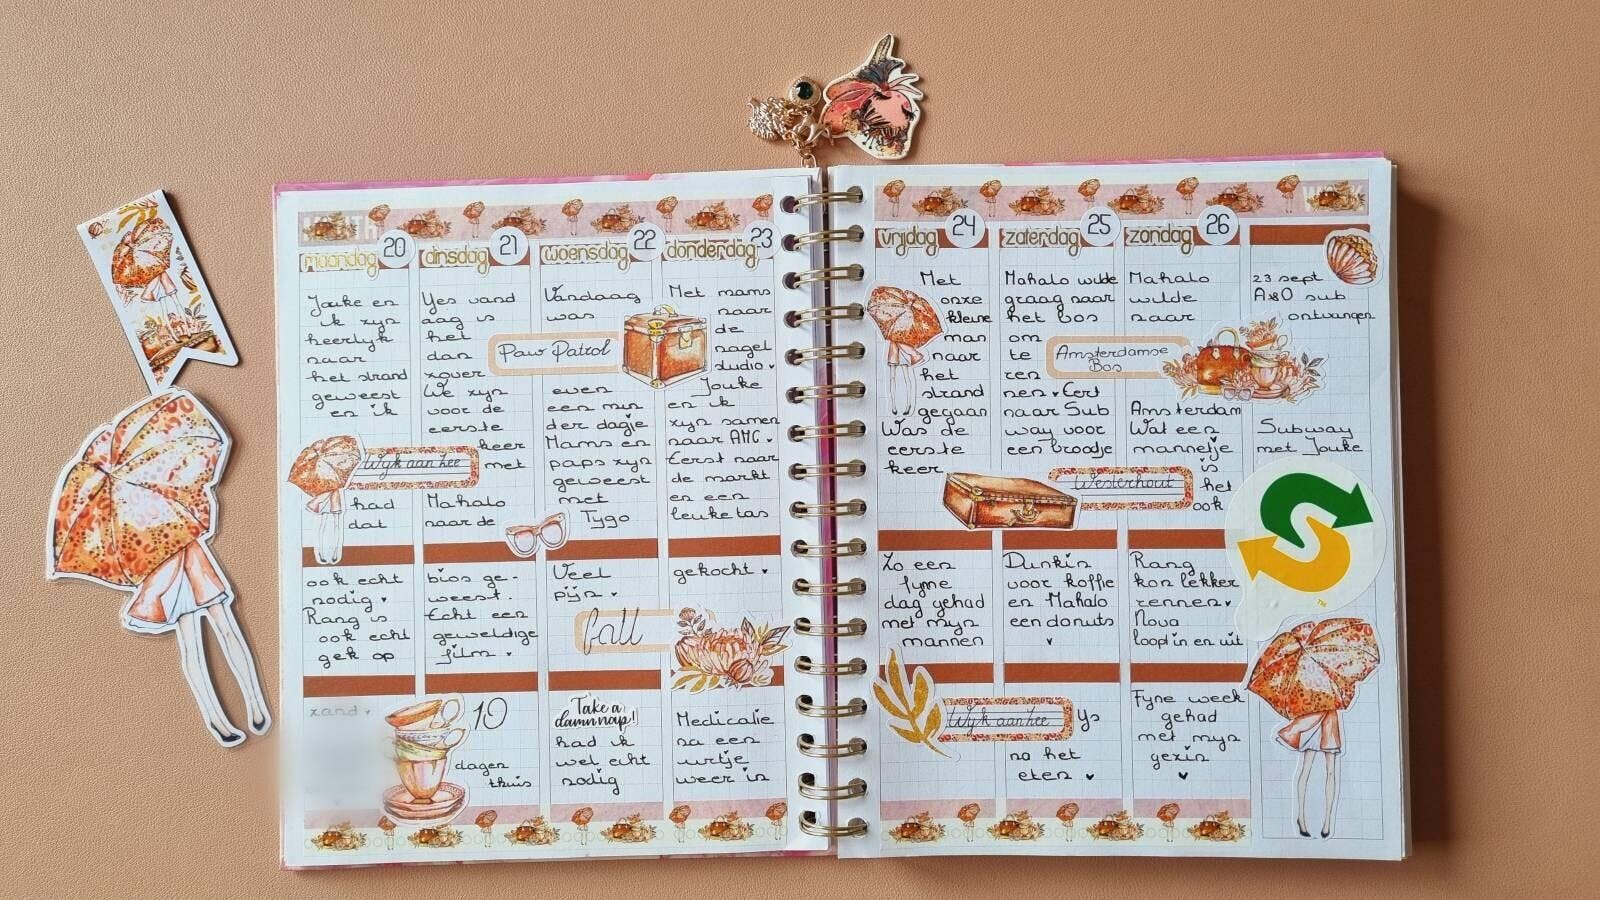 maandag 20
Jouke en
ik zyn
heerlyk
naar
het strand
geweest
en ik
Wyk aan Zee
had
dat
ook echt
nodig
Rang is
ook echt
gek op
zand
dinsdag 21
Yes vand
aag is
het
dan
zover
We zyn
voor de
eerste
keer
met
Mahalo
naar de
bios ge-
weest.
Echt een
geweldige
film
10
dagen
thuis
woensdag 22
Vandaag
was
Paw Patrol
even
een min
der dagje
Mams en
paps zyn
geweest
met
Tygo
Veel
pijn
fall
Take a
damn nap!
had ik
wel echt
nodig
donderdag 23
Met mams
naar
de
nagel
studio
Jouke
en ik
zyn samen
naar AMC
Eerst naar
de markt
en een
leuke tas
gekocht
Medicatie
na een
uurtje
weer in
vrijdag 24
Met
onze
kleine
man
naar
het
strand
gegaan
Was de
eerste
keer
Zo een
fyne
dag gehad
met myn
mannen
Wyk aan Zee
zaterdag 25
Mahalo wilde
graag naar
het bos
om
te
ren
nen Eerst
naar Sub
way voor
een broodje
Westerhout
Dunkin
voor koffie
en Mahalo
een donuts
Ys
na het
eten
zondag 26
Mahalo
wilde
naar
Amsterdamse
Bos
Amsterdam
Wat een
mannetje
is
het
ook
Rang
kon lekker
rennen
Nova
loop in en uit
Fyne week
gehad
met myn
gezin
WEEK
23 sept
A&O sub
ontvangen
Subway
met Jouke
TM